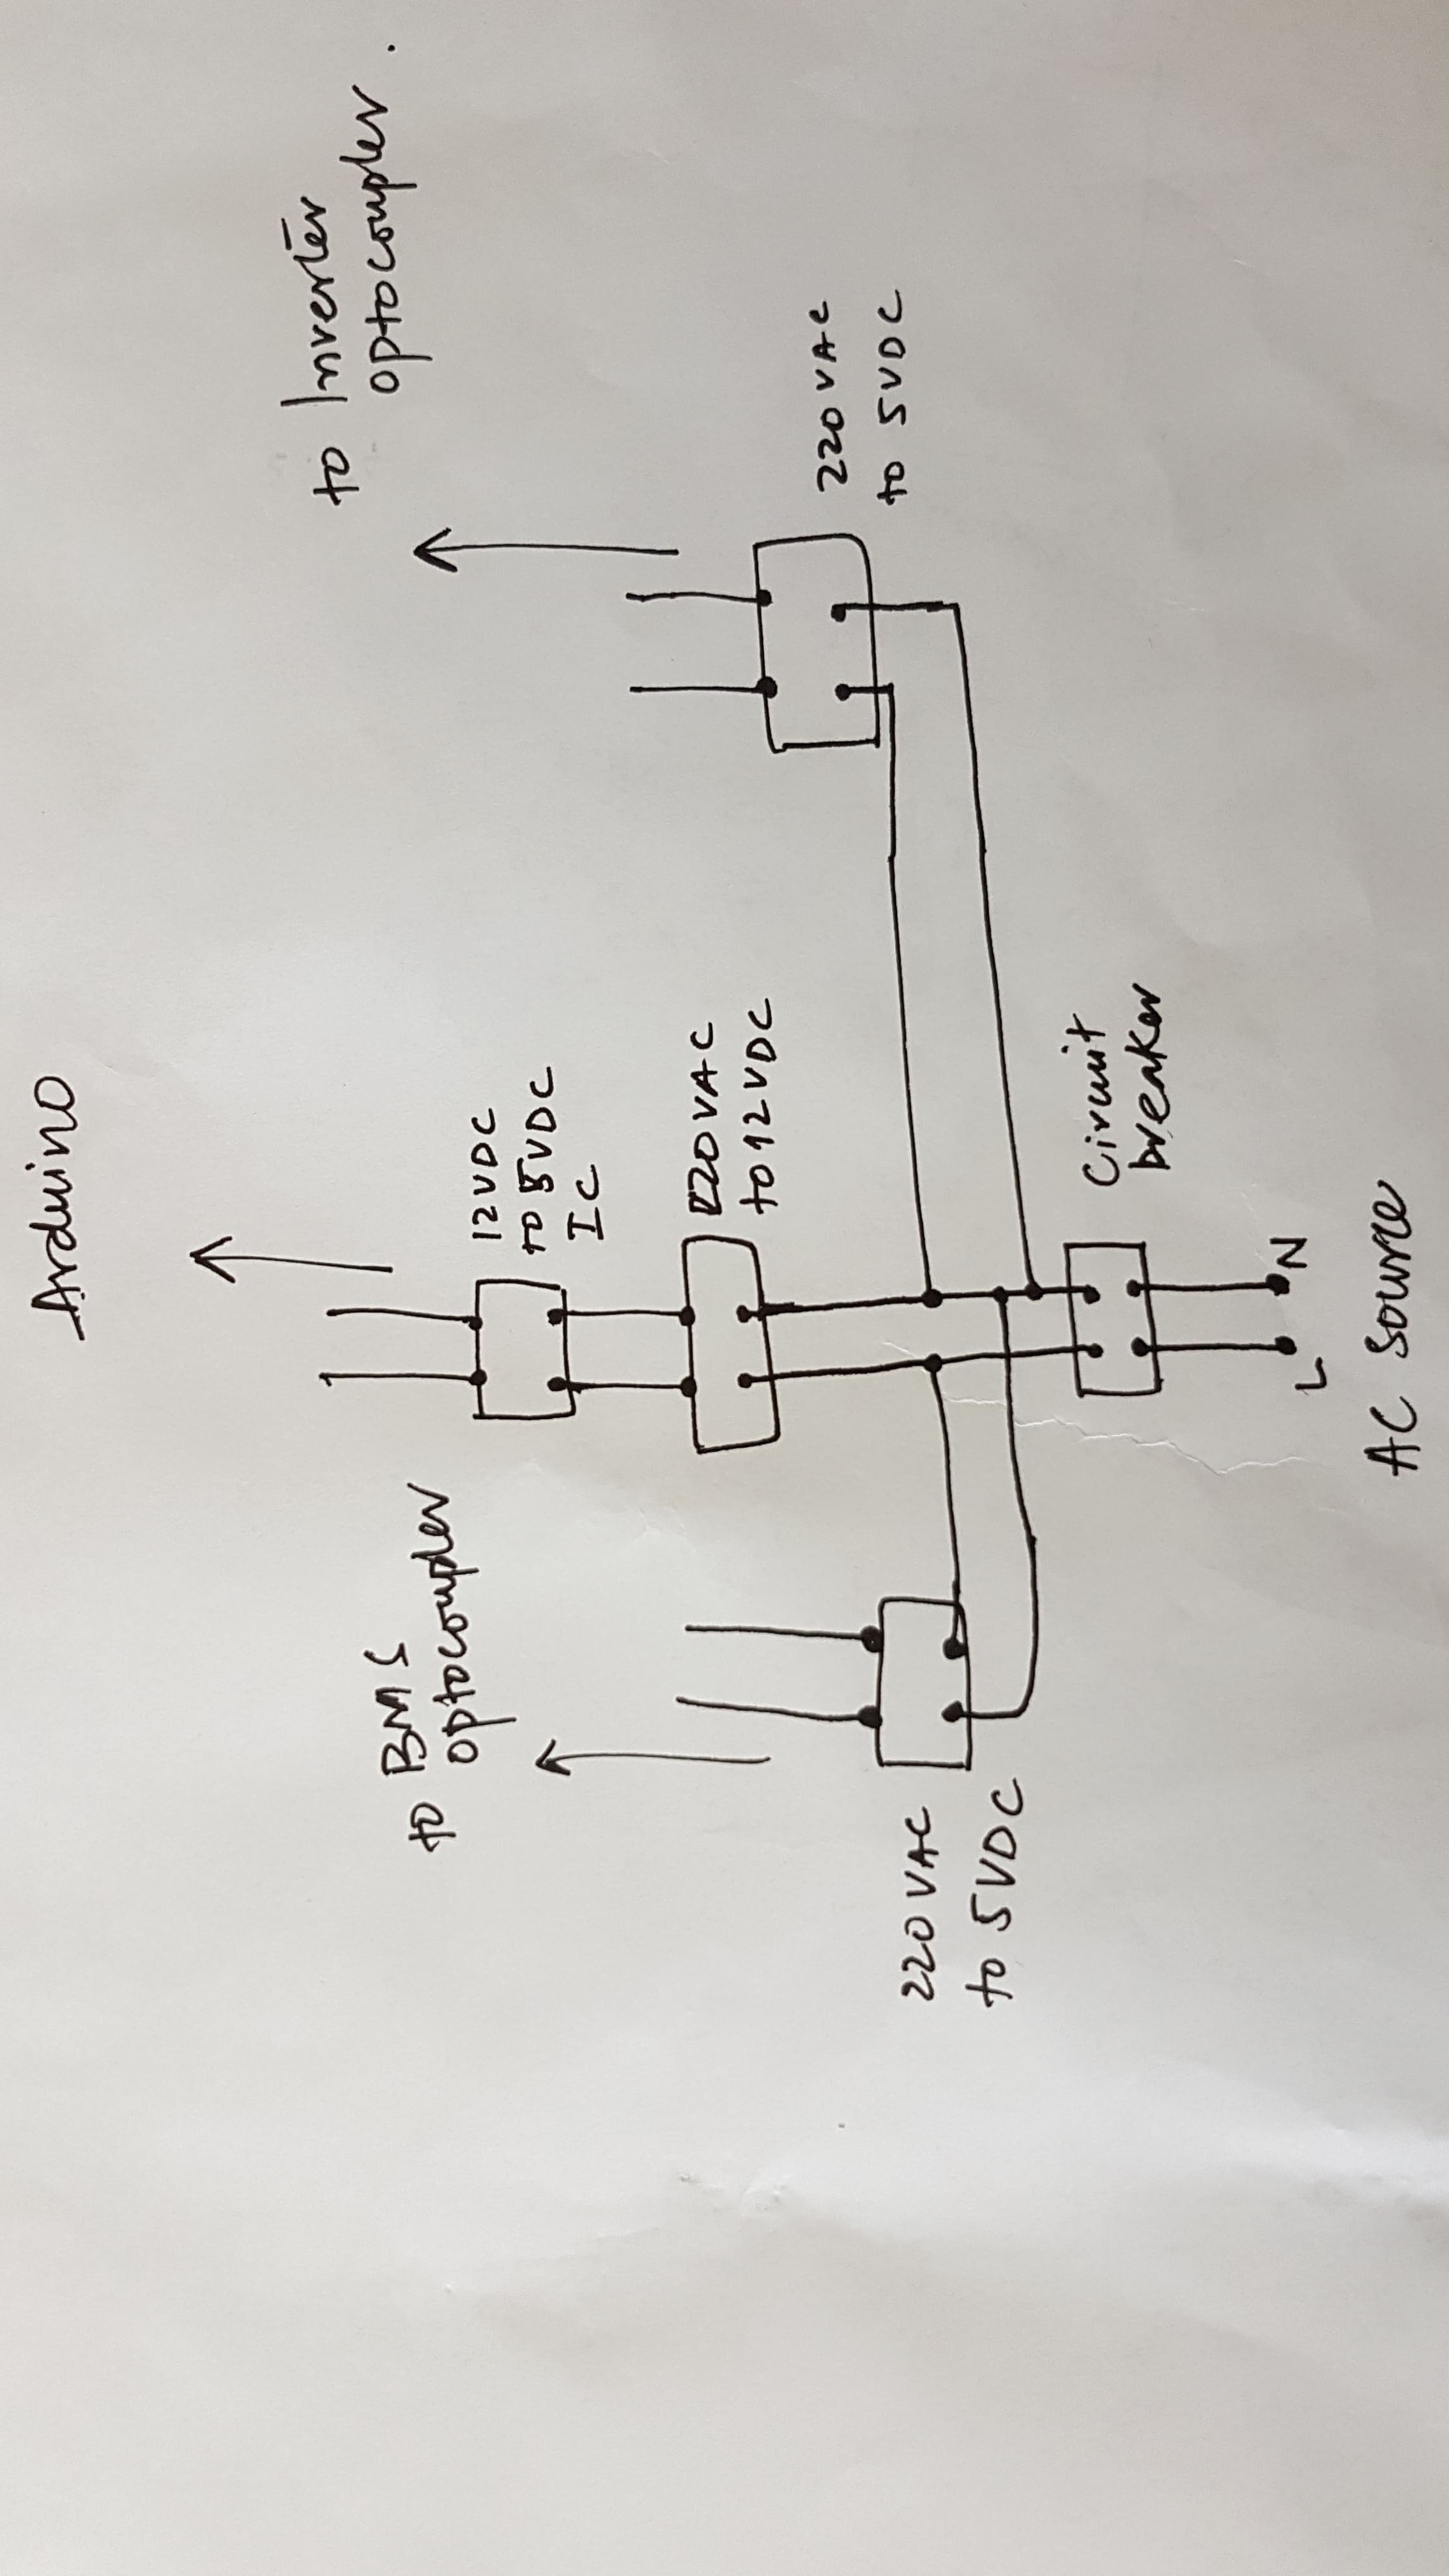 Arduino
to Inverter
optocoupler.
12VDC
to 5VDC
IC
220VAC
to 12VDC
to BMS
optocoupler
220VAC
to 5VDC
220VAC
to 5VDC
Circuit
breaker
L
N
AC Source